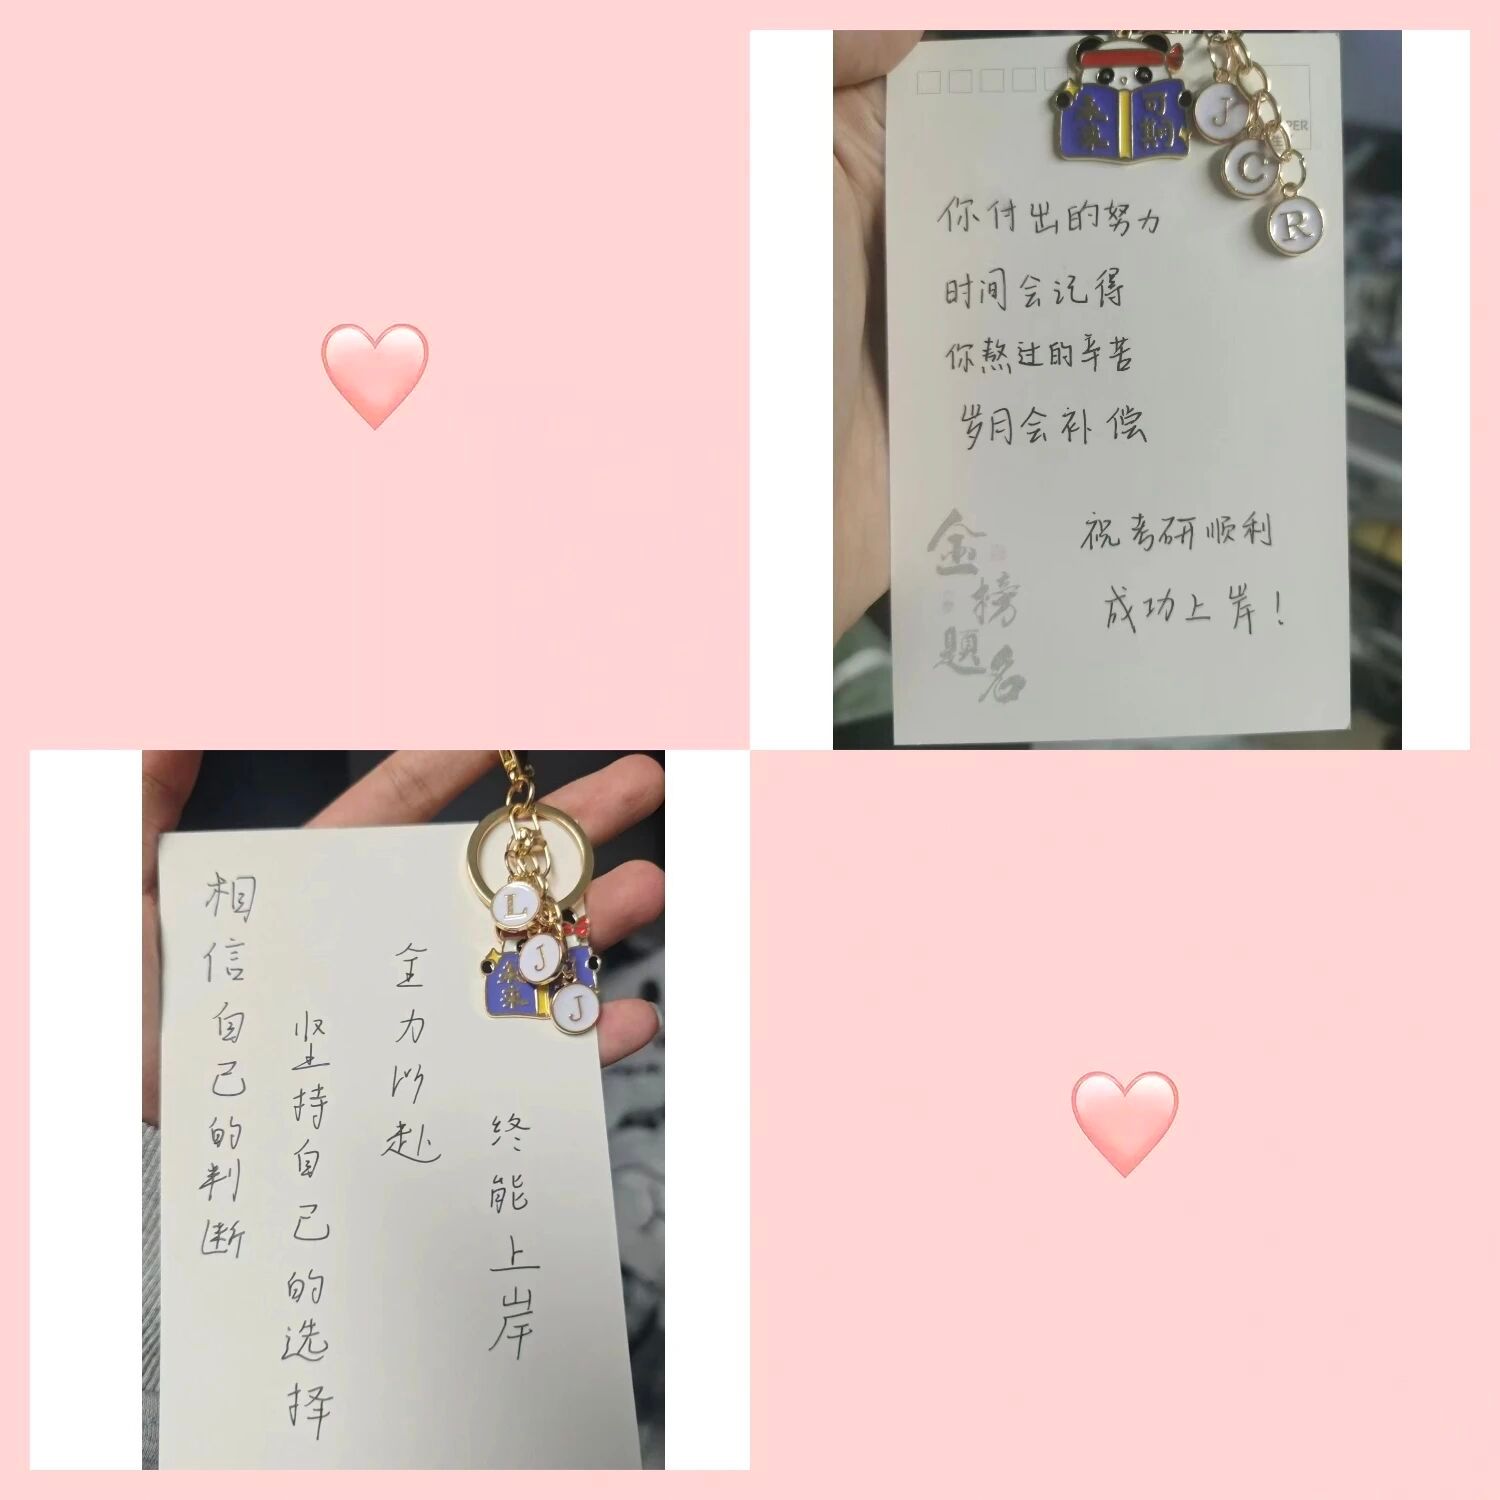 未来
可期
J
C
R
PER
你付出的努力
时间会记得
你熬过的辛苦
岁月会补偿
祝考研顺利
成功上岸！
金榜题名
L
J
J
未来
相信自己的判断
坚持自己的选择
全力以赴
终能上岸